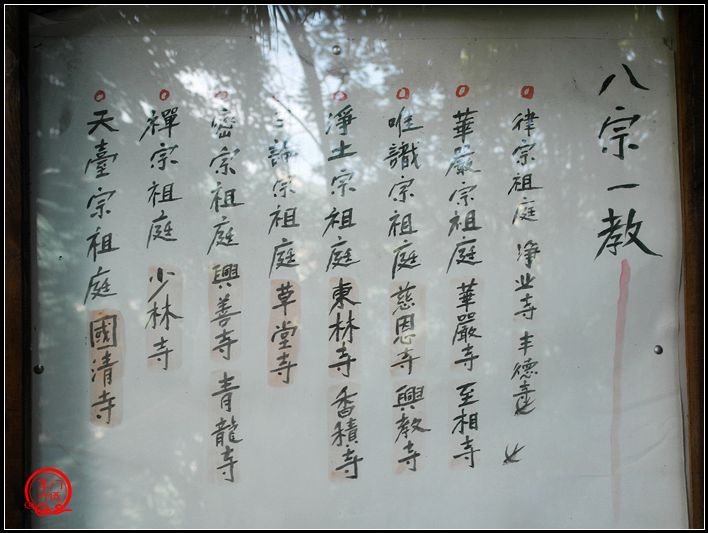 八宗一教
律宗祖庭 净业寺 丰德寺
華嚴宗祖庭 華嚴寺 至相寺
唯識宗祖庭 慈恩寺 興教寺
淨土宗祖庭 東林寺 香積寺
三論宗祖庭 草堂寺
密宗祖庭 興善寺 青龍寺
禪宗祖庭 少林寺
天臺宗祖庭 國清寺